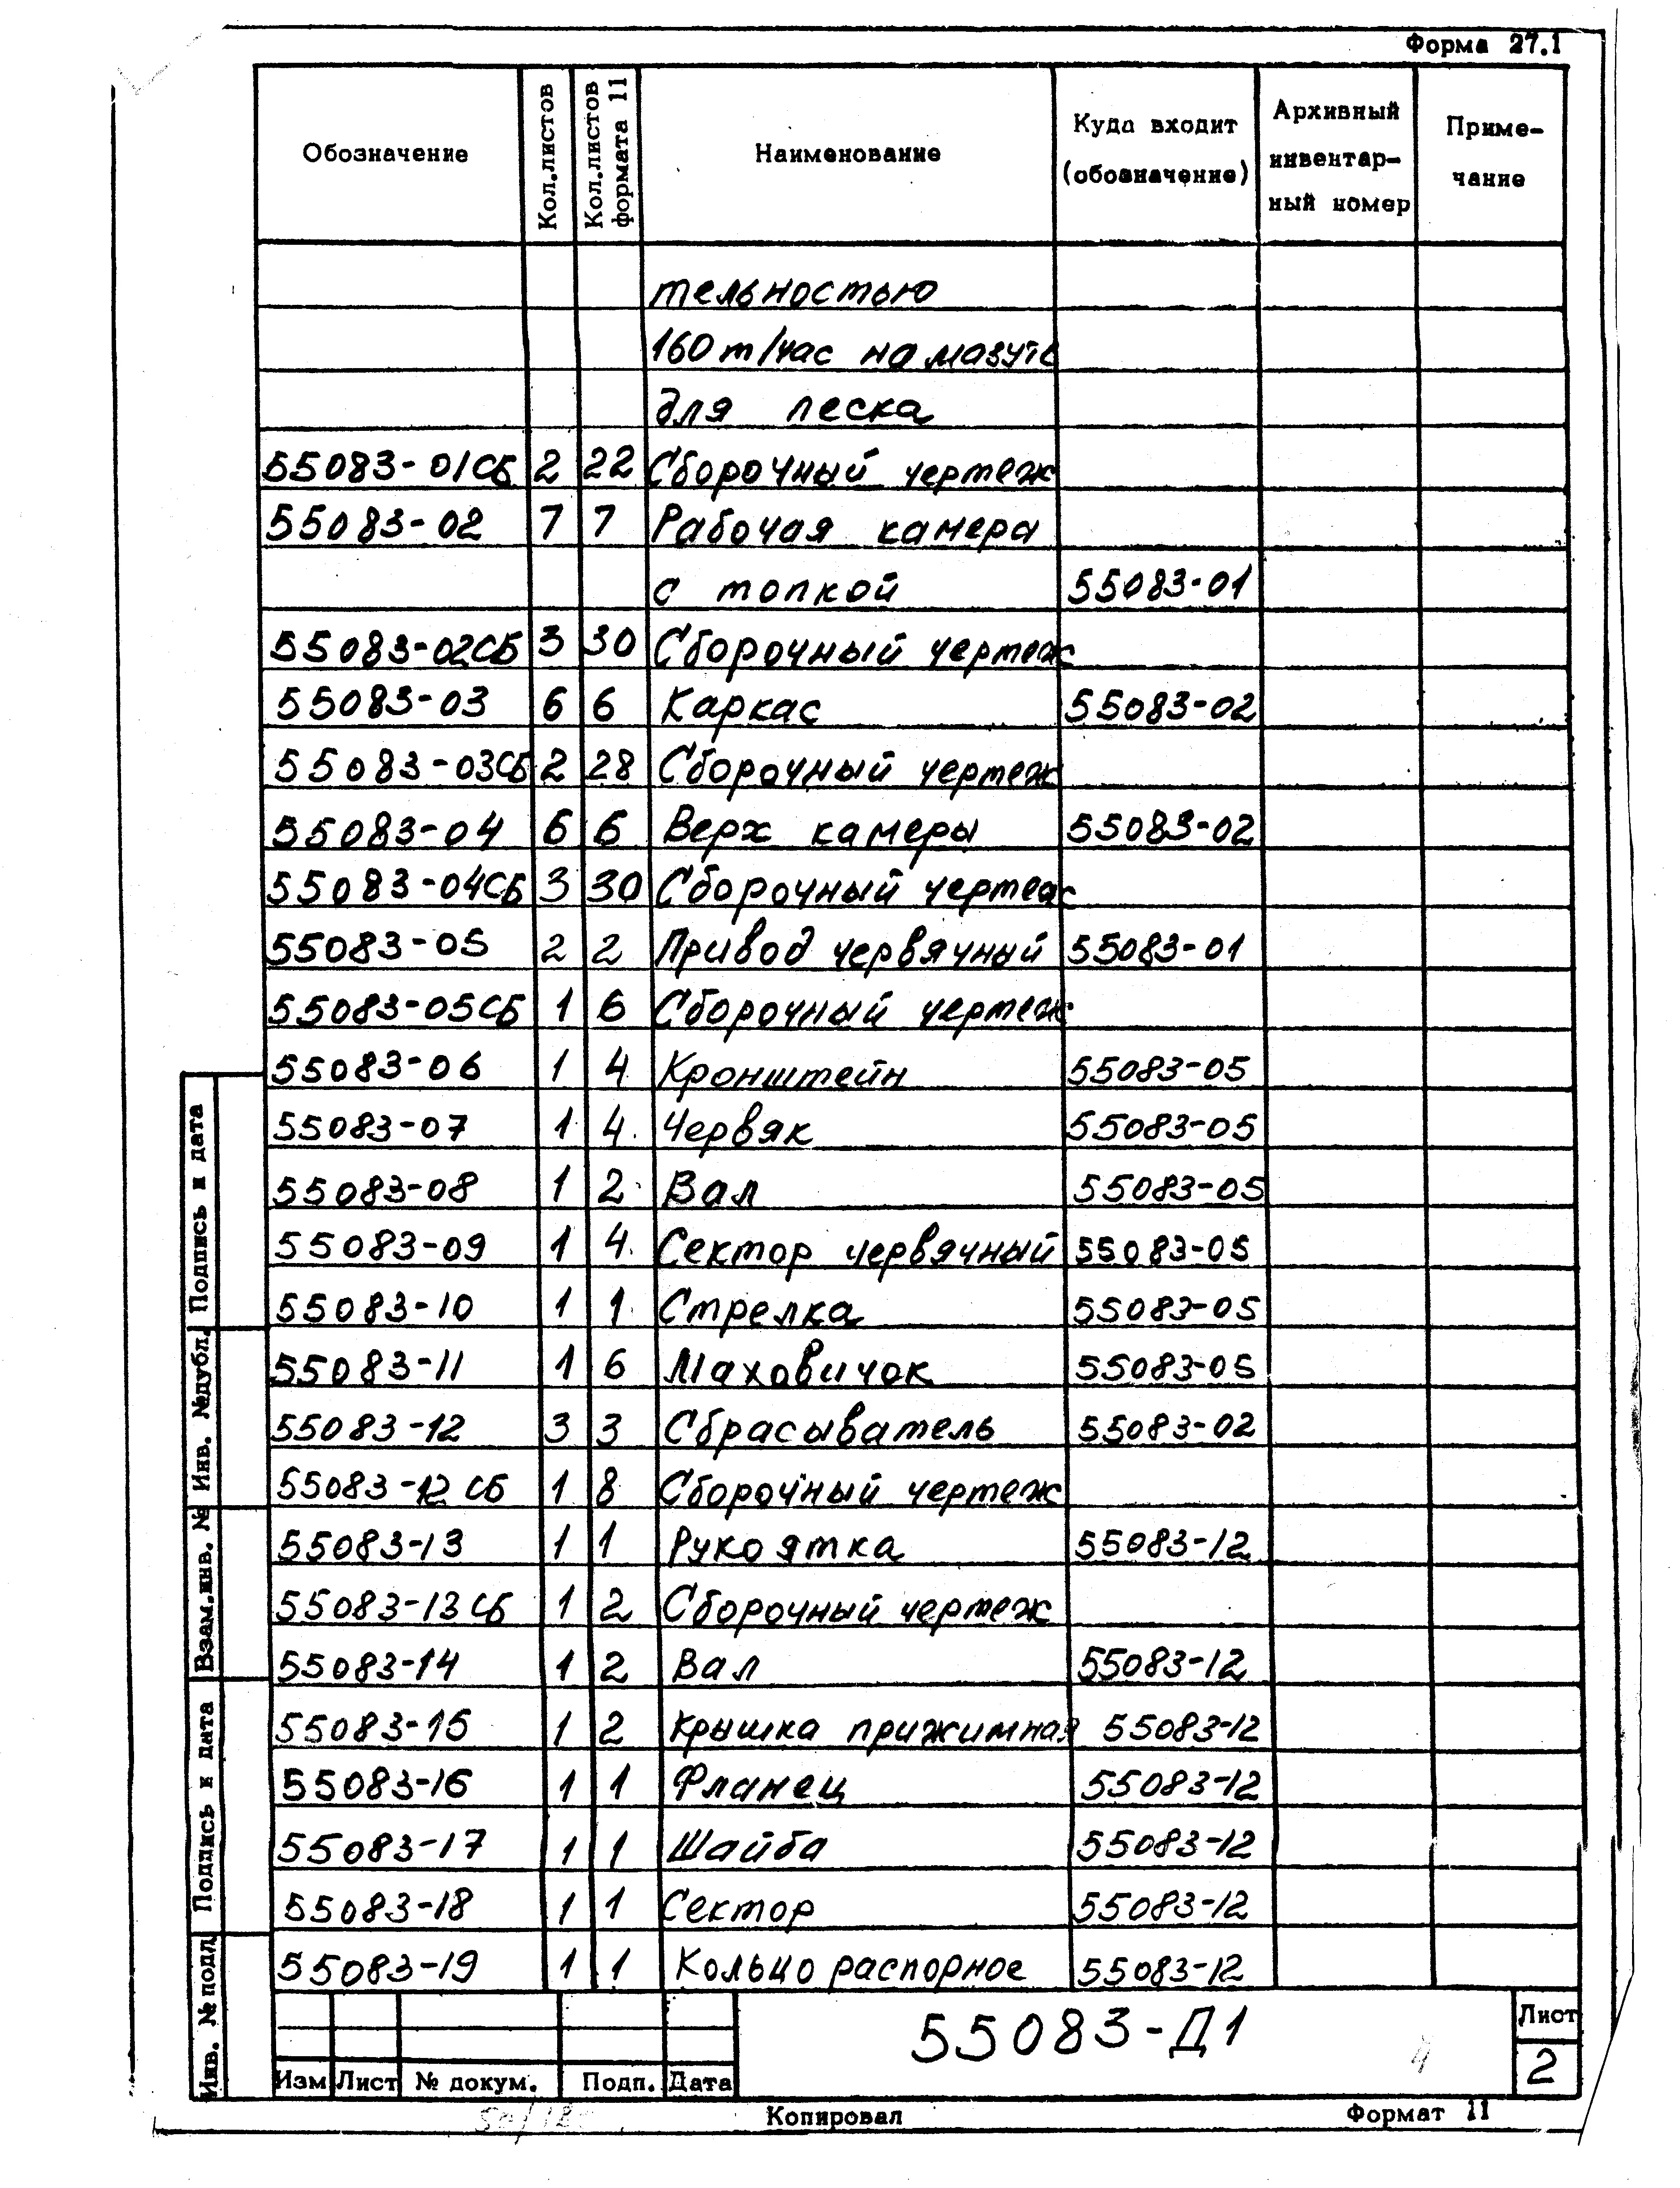 Форма 27.1
Обозначение Кол.листов Кол.листов формата 11 Наименование Куда входит (обозначение) Архивный инвентар-ный номер Приме-чание
тельностью
160 т/час на мазуте
для песка
55083-01СБ 2 22 Сборочный чертеж
55083-02 7 7 Рабочая камера
с топкой 55083-01
55083-02СБ 3 30 Сборочный чертеж
55083-03 6 6 Каркас 55083-02
55083-03СБ 2 28 Сборочный чертеж
55083-04 6 6 Верх камеры 55083-02
55083-04СБ 3 30 Сборочный чертеж
55083-05 2 2 Привод червячный 55083-01
55083-05СБ 1 6 Сборочный чертеж
55083-06 1 4 Кронштейн 55083-05
55083-07 1 4 Червяк 55083-05
55083-08 1 2 Вал 55083-05
55083-09 1 4 Сектор червячный 55083-05
55083-10 1 1 Стрелка 55083-05
55083-11 1 6 Маховичок 55083-05
55083-12 3 3 Сбрасыватель 55083-02
55083-12 СБ 1 8 Сборочный чертеж
55083-13 1 1 Рукоятка 55083-12
55083-13 СБ 1 2 Сборочный чертеж
55083-14 1 2 Вал 55083-12
55083-15 1 2 Крышка прижимная 55083-12
55083-16 1 1 Фланец 55083-12
55083-17 1 1 Шайба 55083-12
55083-18 1 1 Сектор 55083-12
55083-19 1 1 Кольцо распорное 55083-12
Подпись и дата
Инв. №дубл.
Взам.инв. №
Подпись и дата
Инв. № подл
55083-Д1
Лист
2
4
Изм Лист № докум. Подп. Дата
Копировал Формат 11